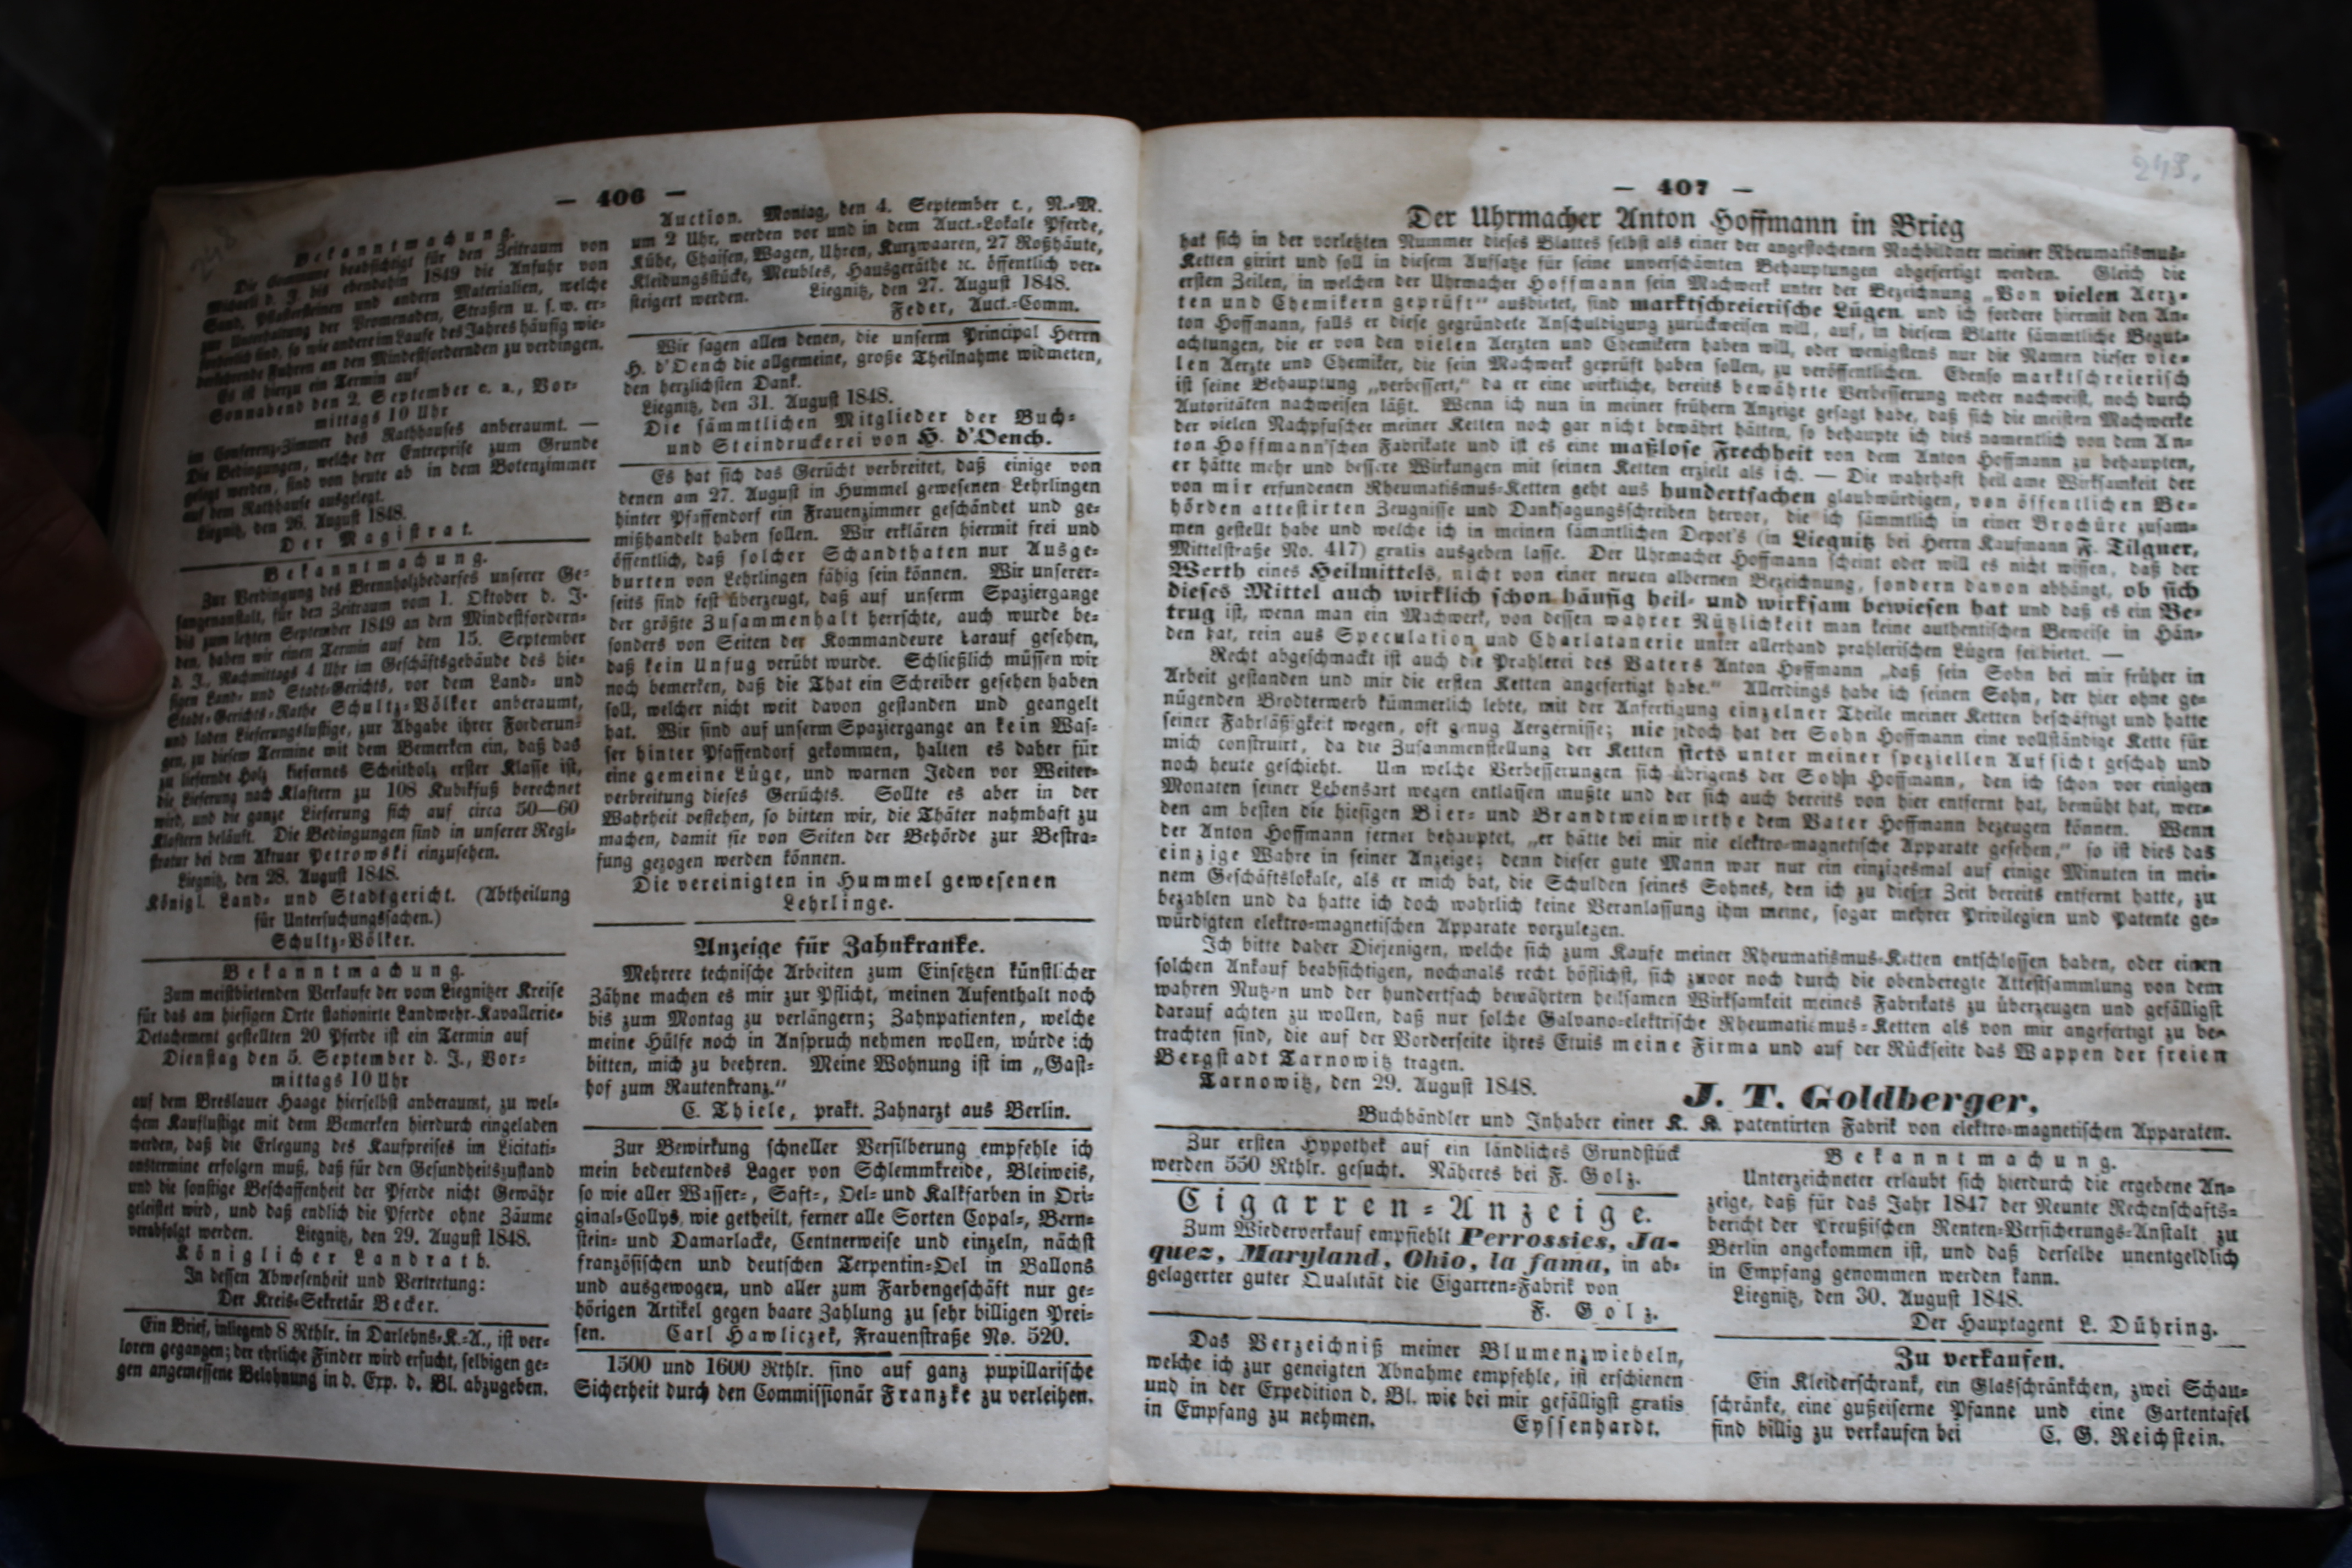 — 406 —
Bekanntmachung.
Die Commune beabsichtigt für den Zeitraum von
Michaeli d. J. bis ebendahin 1849 die Anfuhr von
Sand, Pflastersteinen und andern Materialien, welche
zur Unterhaltung der Promenaden, Straßen u. s. w. er-
forderlich sind, so wie andere im Laufe des Jahres häufig wie-
derkehrende Fuhren an den Mindestfordernden zu verdingen.
Es ist hierzu ein Termin auf
Sonnabend den 2. September c. a., Vor-
mittags 10 Uhr
im Conferenz-Zimmer des Rathhauses anberaumt. —
Die Bedingungen, welche der Entreprise zum Grunde
gelegt werden, sind von heute ab in dem Botenzimmer
auf dem Rathhause ausgelegt.
Liegnitz, den 26. August 1848.
Der Magistrat.
Bekanntmachung.
Zur Verdingung des Brennholzbedarfes unserer Ge-
fangenanstalt, für den Zeitraum vom 1. Oktober d. J.
bis zum letzten September 1849 an den Mindestfordern-
den, haben wir einen Termin auf den 15. September
d. J., Nachmittags 4 Uhr im Geschäftsgebäude des hie-
sigen Land- und Stadt-Gerichts, vor dem Land- und
Stadt-Gerichts-Rathe Schultz-Völker anberaumt,
und laden Lieferungslustige, zur Abgabe ihrer Forderun-
gen, zu diesem Termine mit dem Bemerken ein, daß das
zu liefernde Holz kiefernes Scheitholz erster Klasse ist,
die Lieferung nach Klaftern zu 108 Kubikfuß berechnet
wird, und die ganze Lieferung sich auf circa 50—60
Klaftern beläuft. Die Bedingungen sind in unserer Regi-
stratur bei dem Aktuar Petrowski einzusehen.
Liegnitz, den 28. August 1848.
Königl. Land- und Stadtgericht. (Abtheilung
für Untersuchungssachen.)
Schultz-Völker.
Bekanntmachung.
Zum meistbietenden Verkaufe der vom Liegnitzer Kreise
für das am hiesigen Orte stationirte Landwehr-Kavallerie-
Detachement gestellten 20 Pferde ist ein Termin auf
Dienstag den 5. September d. J., Vor-
mittags 10 Uhr
auf dem Breslauer Haage hierselbst anberaumt, zu wel-
chem Kauflustige mit dem Bemerken hierdurch eingeladen
werden, daß die Erlegung des Kaufpreises im Licitati-
onstermine erfolgen muß, daß für den Gesundheitszustand
und die sonstige Beschaffenheit der Pferde nicht Gewähr
geleistet wird, und daß endlich die Pferde ohne Zäume
verabfolgt werden. Liegnitz, den 29. August 1848.
Königlicher Landrath.
In dessen Abwesenheit und Vertretung:
Der Kreis-Sekretär Becker.
Ein Brief, inliegend 8 Rthlr. in Darlehns-K.-A., ist ver-
loren gegangen; der ehrliche Finder wird ersucht, selbigen ge-
gen angemessene Belohnung in d. Exp. d. Bl. abzugeben.
Auction. Montag, den 4. September c., N.-M.
um 2 Uhr, werden vor und in dem Auct.-Lokale Pferde,
Kühe, Chaisen, Wagen, Uhren, Kurzwaaren, 27 Roßhäute,
Kleidungsstücke, Meubles, Hausgeräthe ꝛc. öffentlich ver-
steigert werden. Liegnitz, den 27. August 1848.
Feder, Auct.-Comm.
Wir sagen allen denen, die unserm Principal Herrn
H. d'Oench die allgemeine, große Theilnahme widmeten,
den herzlichsten Dank.
Liegnitz, den 31. August 1848.
Die sämmtlichen Mitglieder der Buch-
und Steindruckerei von H. d'Oench.
Es hat sich das Gerücht verbreitet, daß einige von
denen am 27. August in Hummel gewesenen Lehrlingen
hinter Pfaffendorf ein Frauenzimmer geschändet und ge-
mißhandelt haben sollen. Wir erklären hiermit frei und
öffentlich, daß solcher Schandthaten nur Ausge-
burten von Lehrlingen fähig sein können. Wir unserer-
seits sind fest überzeugt, daß auf unserm Spaziergange
der größte Zusammenhalt herrschte, auch wurde be-
sonders von Seiten der Kommandeure darauf gesehen,
daß kein Unfug verübt wurde. Schließlich müssen wir
noch bemerken, daß die That ein Schreiber gesehen haben
soll, welcher nicht weit davon gestanden und geangelt
hat. Wir sind auf unserm Spaziergange an kein Was-
ser hinter Pfaffendorf gekommen, halten es daher für
eine gemeine Lüge, und warnen Jeden vor Weiter-
verbreitung dieses Gerüchts. Sollte es aber in der
Wahrheit bestehen, so bitten wir, die Thäter nahmhaft zu
machen, damit sie von Seiten der Behörde zur Bestra-
fung gezogen werden können.
Die vereinigten in Hummel gewesenen
Lehrlinge.
Anzeige für Zahnkranke.
Mehrere technische Arbeiten zum Einsetzen künstlicher
Zähne machen es mir zur Pflicht, meinen Aufenthalt noch
bis zum Montag zu verlängern; Zahnpatienten, welche
meine Hülfe noch in Anspruch nehmen wollen, würde ich
bitten, mich zu beehren. Meine Wohnung ist im „Gast-
hof zum Rautenkranz.“
C. Thiele, prakt. Zahnarzt aus Berlin.
Zur Bewirkung schneller Versilberung empfehle ich
mein bedeutendes Lager von Schlemmkreide, Bleiweis,
so wie aller Wasser-, Saft-, Oel- und Kalkfarben in Ori-
ginal-Collys, wie getheilt, ferner alle Sorten Copal-, Bern-
stein- und Damarlacke, Centnerweise und einzeln, nächst
französischen und deutschen Terpentin-Oel in Ballons
und ausgewogen, und aller zum Farbengeschäft nur ge-
hörigen Artikel gegen baare Zahlung zu sehr billigen Prei-
sen. Carl Hawliczek, Frauenstraße No. 520.
1500 und 1600 Rthlr. sind auf ganz pupillarische
Sicherheit durch den Commissionär Franzke zu verleihen.
243.
— 407 —
Der Uhrmacher Anton Hoffmann in Brieg
hat sich in der vorletzten Nummer dieses Blattes selbst als einer der angestochenen Nachbildner meiner Rheumatismus-
Ketten girirt und soll in diesem Aufsatze für seine unverschämten Behauptungen abgefertigt werden. Gleich die
ersten Zeilen, in welchen der Uhrmacher Hoffmann sein Machwerk unter der Bezeichnung „Von vielen Aerz-
ten und Chemikern geprüft“ ausbietet, sind marktschreierische Lügen, und ich fordere hiermit den An-
ton Hoffmann, falls er diese gegründete Anschuldigung zurückweisen will, auf, in diesem Blatte sämmtliche Begut-
achtungen, die er von den vielen Aerzten und Chemikern haben will, oder wenigstens nur die Namen dieser vie-
len Aerzte und Chemiker, die sein Machwerk geprüft haben sollen, zu veröffentlichen. Ebenso marktschreierisch
ist seine Behauptung „verbessert,“ da er eine wirkliche, bereits bewährte Verbesserung weder nachweist, noch durch
Autoritäten nachweisen läßt. Wenn ich nun in meiner frühern Anzeige gesagt habe, daß sich die meisten Machwerke
der vielen Nachpfuscher meiner Ketten noch gar nicht bewährt hätten, so behaupte ich dies namentlich von dem An-
ton Hoffmann'schen Fabrikate und ist es eine maßlose Frechheit von dem Anton Hoffmann zu behaupten,
er hätte mehr und bessere Wirkungen mit seinen Ketten erzielt als ich. — Die wahrhaft heilsame Wirksamkeit der
von mir erfundenen Rheumatismus-Ketten geht aus hundertfachen glaubwürdigen, von öffentlichen Be-
hörden attestirten Zeugnisse und Danksagungsschreiben hervor, die ich sämmtlich in einer Brochüre zusam-
men gestellt habe und welche ich in meinen sämmtlichen Depot's (in Liegnitz bei Herrn Kaufmann F. Tilgner,
Mittelstraße No. 417) gratis ausgeben lasse. Der Uhrmacher Hoffmann scheint oder will es nicht wissen, daß der
Werth eines Heilmittels, nicht von einer neuen albernen Bezeichnung, sondern davon abhängt, ob sich
dieses Mittel auch wirklich schon häufig heil- und wirksam bewiesen hat und daß es ein Be-
trug ist, wenn man ein Machwerk, von dessen wahrer Nützlichkeit man keine authentischen Beweise in Hän-
den hat, rein aus Speculation und Charlatanerie unter allerhand prahlerischen Lügen feilbietet. —
Recht abgeschmackt ist auch die Prahlerei des Vaters Anton Hoffmann „daß sein Sohn bei mir früher in
Arbeit gestanden und mir die ersten Ketten angefertigt habe.“ Allerdings habe ich seinen Sohn, der hier ohne ge-
nügenden Brodterwerb kümmerlich lebte, mit der Anfertigung einzelner Theile meiner Ketten beschäftigt und hatte
seiner Fahrläßigkeit wegen, oft genug Aergernisse; nie jedoch hat der Sohn Hoffmann eine vollständige Kette für
mich construirt, da die Zusammenstellung der Ketten stets unter meiner speziellen Aufsicht geschah und
noch heute geschieht. Um welche Verbesserungen sich übrigens der Sohn Hoffmann, den ich schon vor einigen
Monaten seiner Lebensart wegen entlassen mußte und der sich auch bereits von hier entfernt hat, bemüht hat, wer-
den am besten die hiesigen Bier- und Brandtweinwirthe dem Vater Hoffmann bezeugen können. Wenn
der Anton Hoffmann ferner behauptet, „er hätte bei mir nie elektro-magnetische Apparate gesehen,“ so ist dies das
einzige Wahre in seiner Anzeige; denn dieser gute Mann war nur ein einzigesmal auf einige Minuten in mei-
nem Geschäftslokale, als er mich bat, die Schulden seines Sohnes, den ich zu dieser Zeit bereits entfernt hatte, zu
bezahlen und da hatte ich doch wahrlich keine Veranlassung ihm meine, sogar mehrer Privilegien und Patente ge-
würdigten elektro-magnetischen Apparate vorzulegen.
Ich bitte daher Diejenigen, welche sich zum Kaufe meiner Rheumatismus-Ketten entschlossen haben, oder einen
solchen Ankauf beabsichtigen, nochmals recht höflichst, sich zuvor noch durch die obenberegte Attestsammlung von dem
wahren Nutzen und der hundertfach bewährten heilsamen Wirksamkeit meines Fabrikats zu überzeugen und gefälligst
darauf achten zu wollen, daß nur solche Galvano-elektrische Rheumatismus-Ketten als von mir angefertigt zu be-
trachten sind, die auf der Vorderseite ihres Etuis meine Firma und auf der Rückseite das Wappen der freien
Bergstadt Tarnowitz tragen.
Tarnowitz, den 29. August 1848.
J. T. Goldberger,
Buchhändler und Inhaber einer K. K. patentirten Fabrik von elektro-magnetischen Apparaten.
Zur ersten Hypothek auf ein ländliches Grundstück
werden 550 Rthlr. gesucht. Näheres bei F. Golz.
Cigarren-Anzeige.
Zum Wiederverkauf empfiehlt Perrossies, Ja-
quez, Maryland, Ohio, la fama, in ab-
gelagerter guter Qualität die Cigarren-Fabrik von
F. Golz.
Das Verzeichniß meiner Blumenzwiebeln,
welche ich zur geneigten Abnahme empfehle, ist erschienen
und in der Expedition d. Bl. wie bei mir gefälligst gratis
in Empfang zu nehmen. Eyssenhardt.
Bekanntmachung.
Unterzeichneter erlaubt sich hierdurch die ergebene An-
zeige, daß für das Jahr 1847 der Neunte Rechenschafts-
bericht der Preußischen Renten-Versicherungs-Anstalt zu
Berlin angekommen ist, und daß derselbe unentgeldlich
in Empfang genommen werden kann.
Liegnitz, den 30. August 1848.
Der Hauptagent L. Dühring.
Zu verkaufen.
Ein Kleiderschrank, ein Glasschränkchen, zwei Schau-
schränke, eine gußeiserne Pfanne und eine Gartentafel
sind billig zu verkaufen bei C. G. Reichstein.